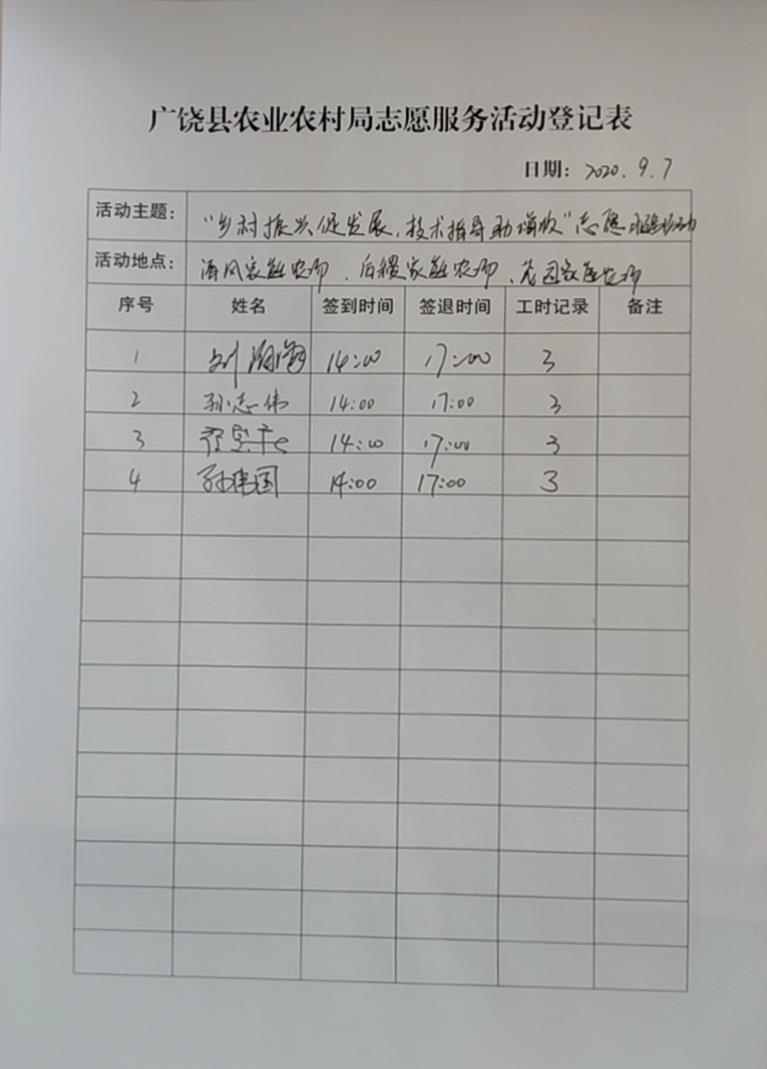 广饶县农业农村局志愿服务活动登记表
日期：2020.9.7
活动主题： “乡村振兴促发展，技术指导助增收”志愿服务活动
活动地点： 海风家庭农场、后稷家庭农场、茂园家庭农场
序号 姓名 签到时间 签退时间 工时记录 备注
1 刘 14:00 17:00 3
2 孙志伟 14:00 17:00 3
3 14:00 17:00 3
4 孙建国 14:00 17:00 3